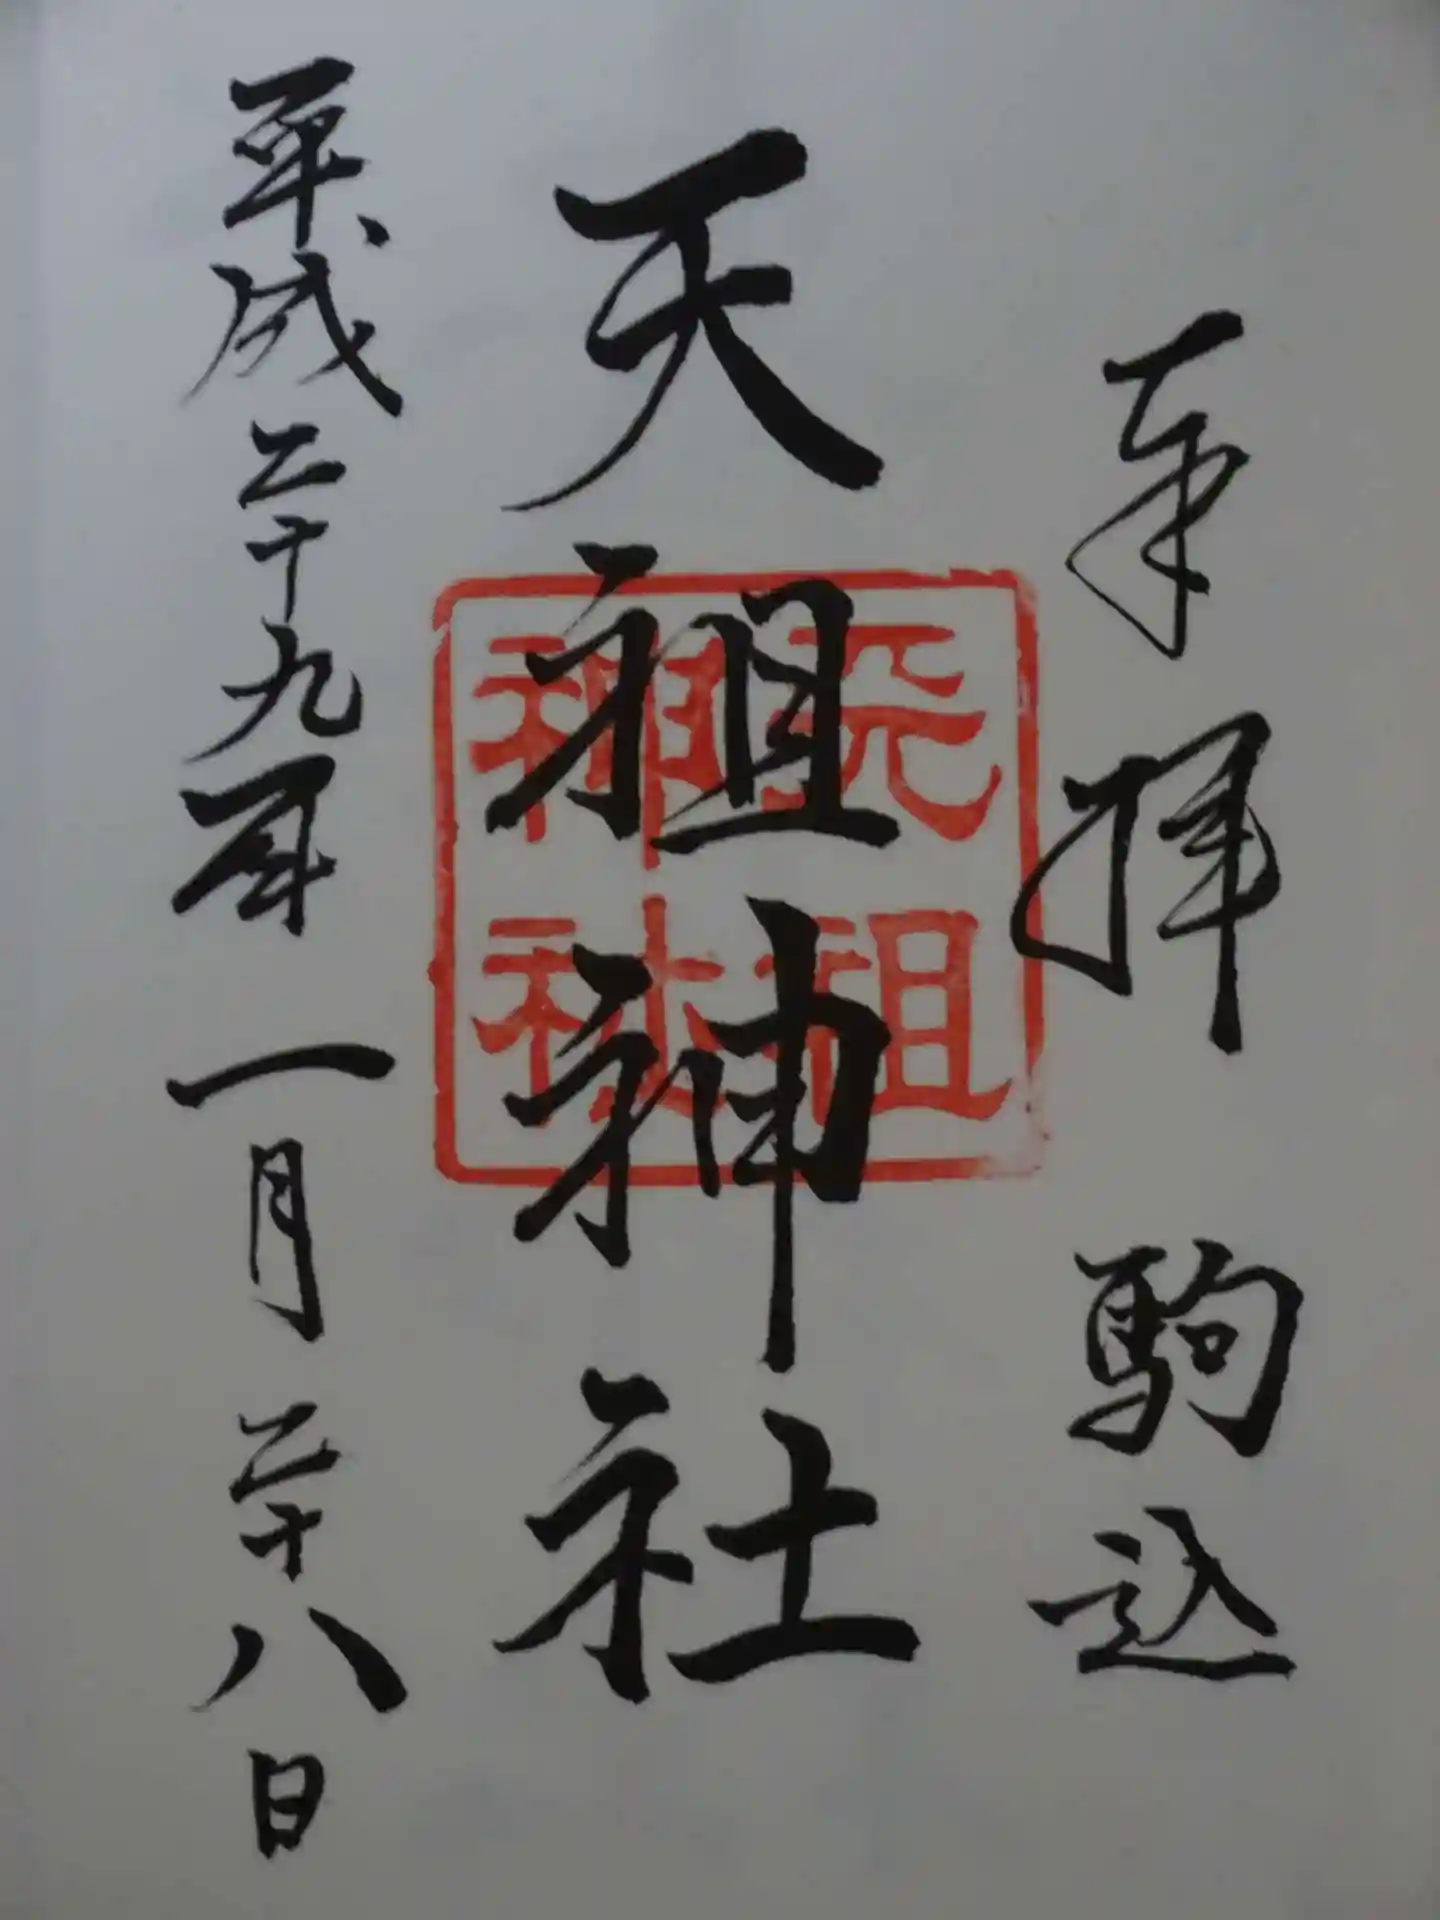 奉拝　駒込
天祖神社
天祖
神社
平成二十九年一月二十八日